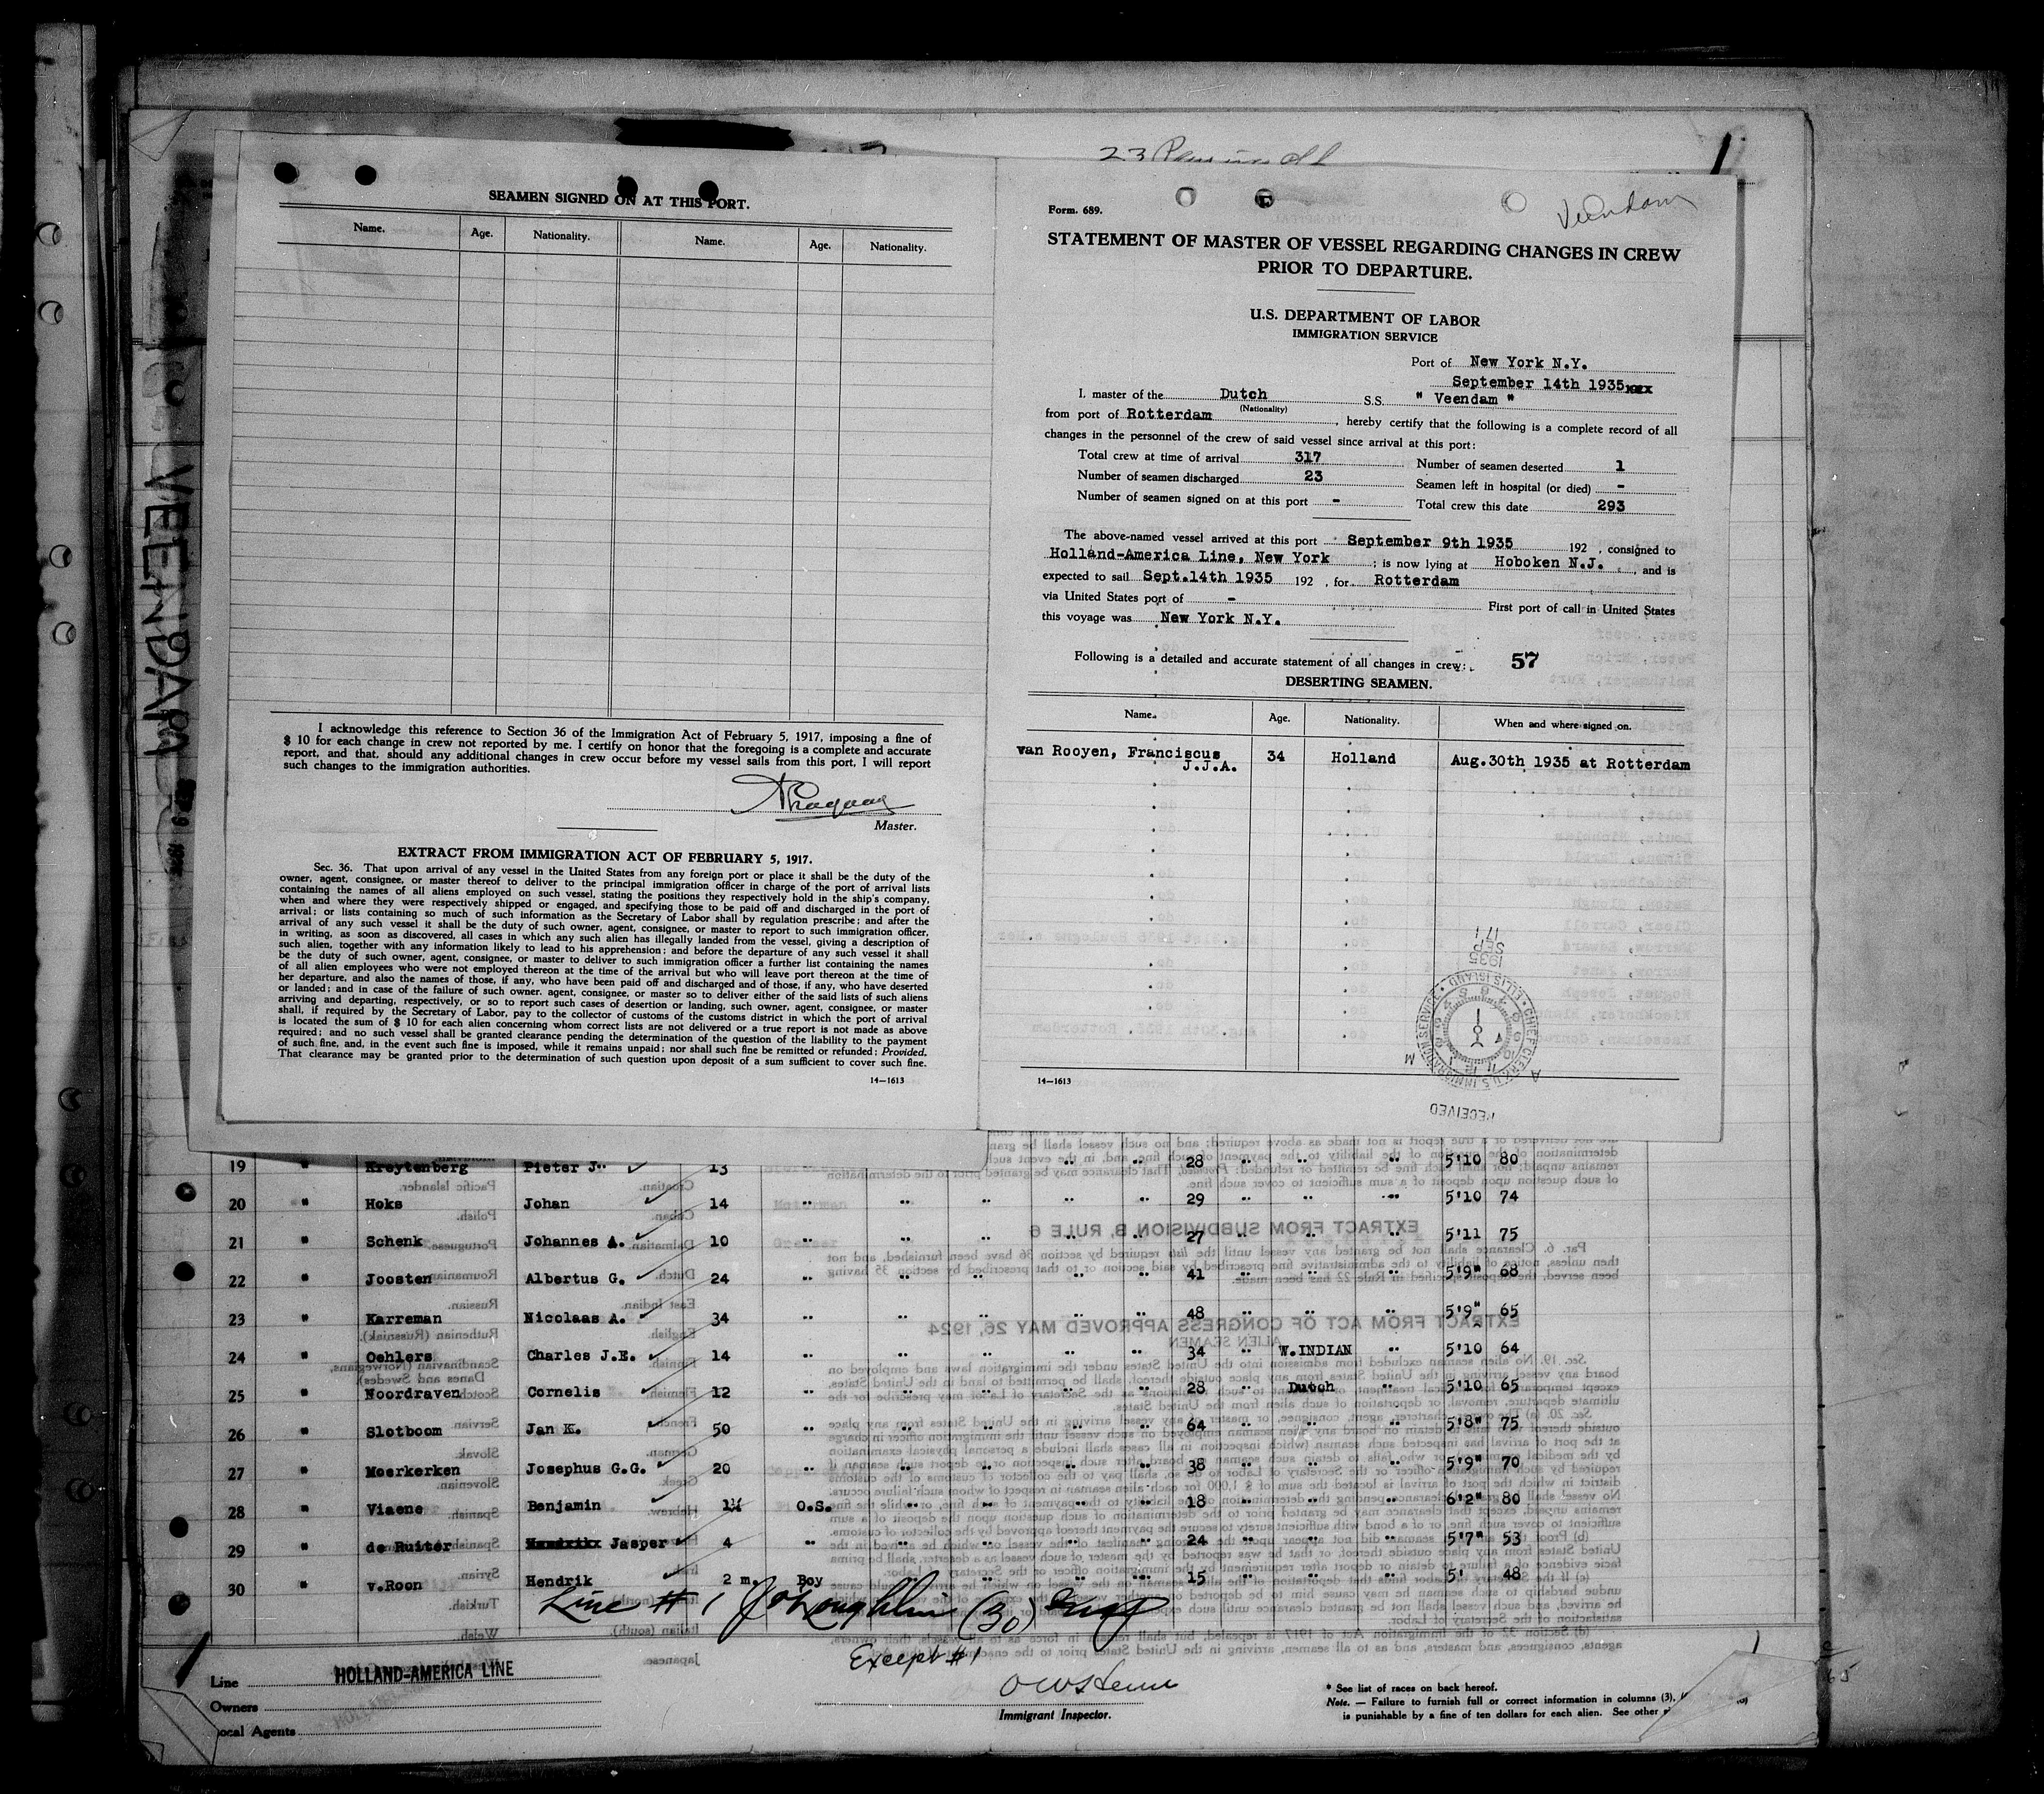 VEENDAM
SEAMEN SIGNED ON AT THIS PORT.
Name. Age. Nationality. Name. Age. Nationality.
I acknowledge this reference to Section 36 of the Immigration Act of February 5, 1917, imposing a fine of
$ 10 for each change in crew not reported by me. I certify on honor that the foregoing is a complete and accurate
report, and that, should any additional changes in crew occur before my vessel sails from this port, I will report
such changes to the immigration authorities.
Master.
EXTRACT FROM IMMIGRATION ACT OF FEBRUARY 5, 1917.
Sec. 36. That upon arrival of any vessel in the United States from any foreign port or place it shall be the duty of the
owner, agent, consignee, or master thereof to deliver to the principal immigration officer in charge of the port of arrival lists
containing the names of all aliens employed on such vessel, stating the positions they respectively hold in the ship's company,
when and where they were respectively shipped or engaged, and specifying those to be paid off and discharged in the port of
arrival; or lists containing so much of such information as the Secretary of Labor shall by regulation prescribe; and after the
arrival of any such vessel it shall be the duty of such owner, agent, consignee, or master to report to such immigration officer,
in writing, as soon as discovered, all cases in which any such alien has illegally landed from the vessel, giving a description of
such alien, together with any information likely to lead to his apprehension; and before the departure of any such vessel it shall
be the duty of such owner, agent, consignee, or master to deliver to such immigration officer a further list containing the names
of all alien employees who were not employed thereon at the time of the arrival but who will leave port thereon at the time of
her departure, and also the names of those, if any, who have been paid off and discharged and of those, if any, who have deserted
or landed; and in case of the failure of such owner. agent, consignee, or master so to deliver either of the said lists of such aliens
arriving and departing, respectively, or so to report such cases of desertion or landing, such owner, agent, consignee, or master
shall, if required by the Secretary of Labor, pay to the collector of customs of the customs district in which the port of arrival
is located the sum of $ 10 for each alien concerning whom correct lists are not delivered or a true report is not made as above
required; and no such vessel shall be granted clearance pending the determination of the question of the liability to the payment
of such fine, and, in the event such fine is imposed, while it remains unpaid; nor shall such fine be remitted or refunded: Provided,
That clearance may be granted prior to the determination of such question upon deposit of a sum sufficient to cover such fine.
14—1613
Veendam
Form. 689.
STATEMENT OF MASTER OF VESSEL REGARDING CHANGES IN CREW
PRIOR TO DEPARTURE.
U.S. DEPARTMENT OF LABOR
IMMIGRATION SERVICE
Port of New York N.Y.
September 14th 1935
I, master of the Dutch S.S. " Veendam "
(Nationality)
from port of Rotterdam , hereby certify that the following is a complete record of all
changes in the personnel of the crew of said vessel since arrival at this port:
Total crew at time of arrival 317 Number of seamen deserted 1
Number of seamen discharged 23 Seamen left in hospital (or died) -
Number of seamen signed on at this port - Total crew this date 293
The above-named vessel arrived at this port September 9th 1935 192 , consigned to
Holland-America Line, New York ; is now lying at Hoboken N.J. , and is
expected to sail Sept.14th 1935 192 , for Rotterdam
via United States port of - First port of call in United States
this voyage was New York N.Y.
Following is a detailed and accurate statement of all changes in crew: 57
DESERTING SEAMEN.
Name. Age. Nationality. When and where signed on.
van Rooyen, Franciscus J.J.A. 34 Holland Aug.30th 1935 at Rotterdam
1935
SEP
17
CHIEF CLERK U.S. IMMIGRATION SERVICE · ELLIS ISLAND
RECEIVED
14—1613
19 " Kreytenberg Pieter J. 13 " " " 28 " " " 5'10 80
20 " Hoks Johan 14 " " " " " 29 " " " 5'10 74
21 " Schenk Johannes A. 10 " " " " " 27 " " " 5'11 75
22 " Joosten Albertus G. 24 " " " " " 41 " " " 5'9" 68
23 " Karreman Nicolaas A. 34 " " " " " 48 " " " 5'9" 65
24 " Oehlers Charles J.E. 14 " " " " " 34 " W.INDIAN " 5'10 64
25 " Noordraven Cornelis 12 " " " " " 28 " Dutch " 5'10 65
26 " Slotboom Jan K. 50 " " " " " 64 " " " 5'8" 75
27 " Moerkerken Josephus G.G. 20 " " " " " 38 " " " 5'9" 70
28 " Viaene Benjamin O.S. " " " " 18 " " " 6'2" 80
29 " de Ruiter Jasper 4 " " " " " 24 " " " 5'7" 53
30 " v.Roon Hendrik 2 m. Boy " " " " 15 " " " 5' 48
Line # 1 J O'Loughlin (30) Insp
Except #1
Line HOLLAND-AMERICA LINE
Owners
Local Agents
Immigrant Inspector.
* See list of races on back hereof.
Note. — Failure to furnish full or correct information in columns (3),
is punishable by a fine of ten dollars for each alien. See other